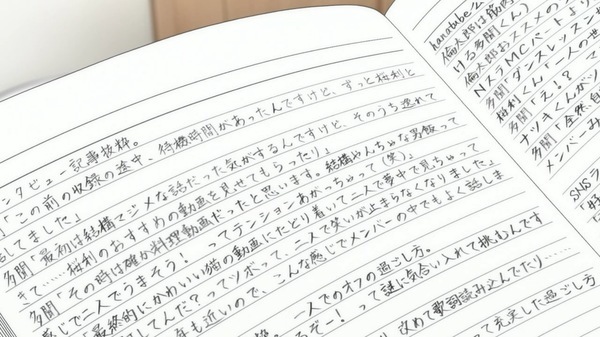 ンタビュー記事抜粋。
「この前の収録の途中、待機時間があったんですけど、ずっと桜利と
話してました」
多聞「最初は結構マジメな話だった気がするんですけど、そのうち逸れて
きて……桜利のおすすめの動画を見せてもらったり」
多聞「その時は確か料理動画だったと思います。結構やんちゃな男飯って
感じで二人でうまそう！ ってテンションあがっちゃって（笑）
「最終的にかわいい猫の動画にたどり着いて二人で夢中で見ちゃって
してんだ？ってツボって、二人で笑いが止まらなくなりました」
年も近いので、こんな感じでメンバーの中でもよく話しま
一人でのオフの過ごし方。
るぞー！ って謎に気合い入れて挑むんです
改めて歌詞読み込んでたり……
って充実した過ごし方
hanatube
倫太郎は筋肉
ける多聞くん）
倫太郎おススメの
NトラMCパートより
多聞ダンスレッスン
桜利くん「一人の世
多聞「え！？
ナツキくんがツ
多聞「全然自
メンバーみ
SNSラ
「肝